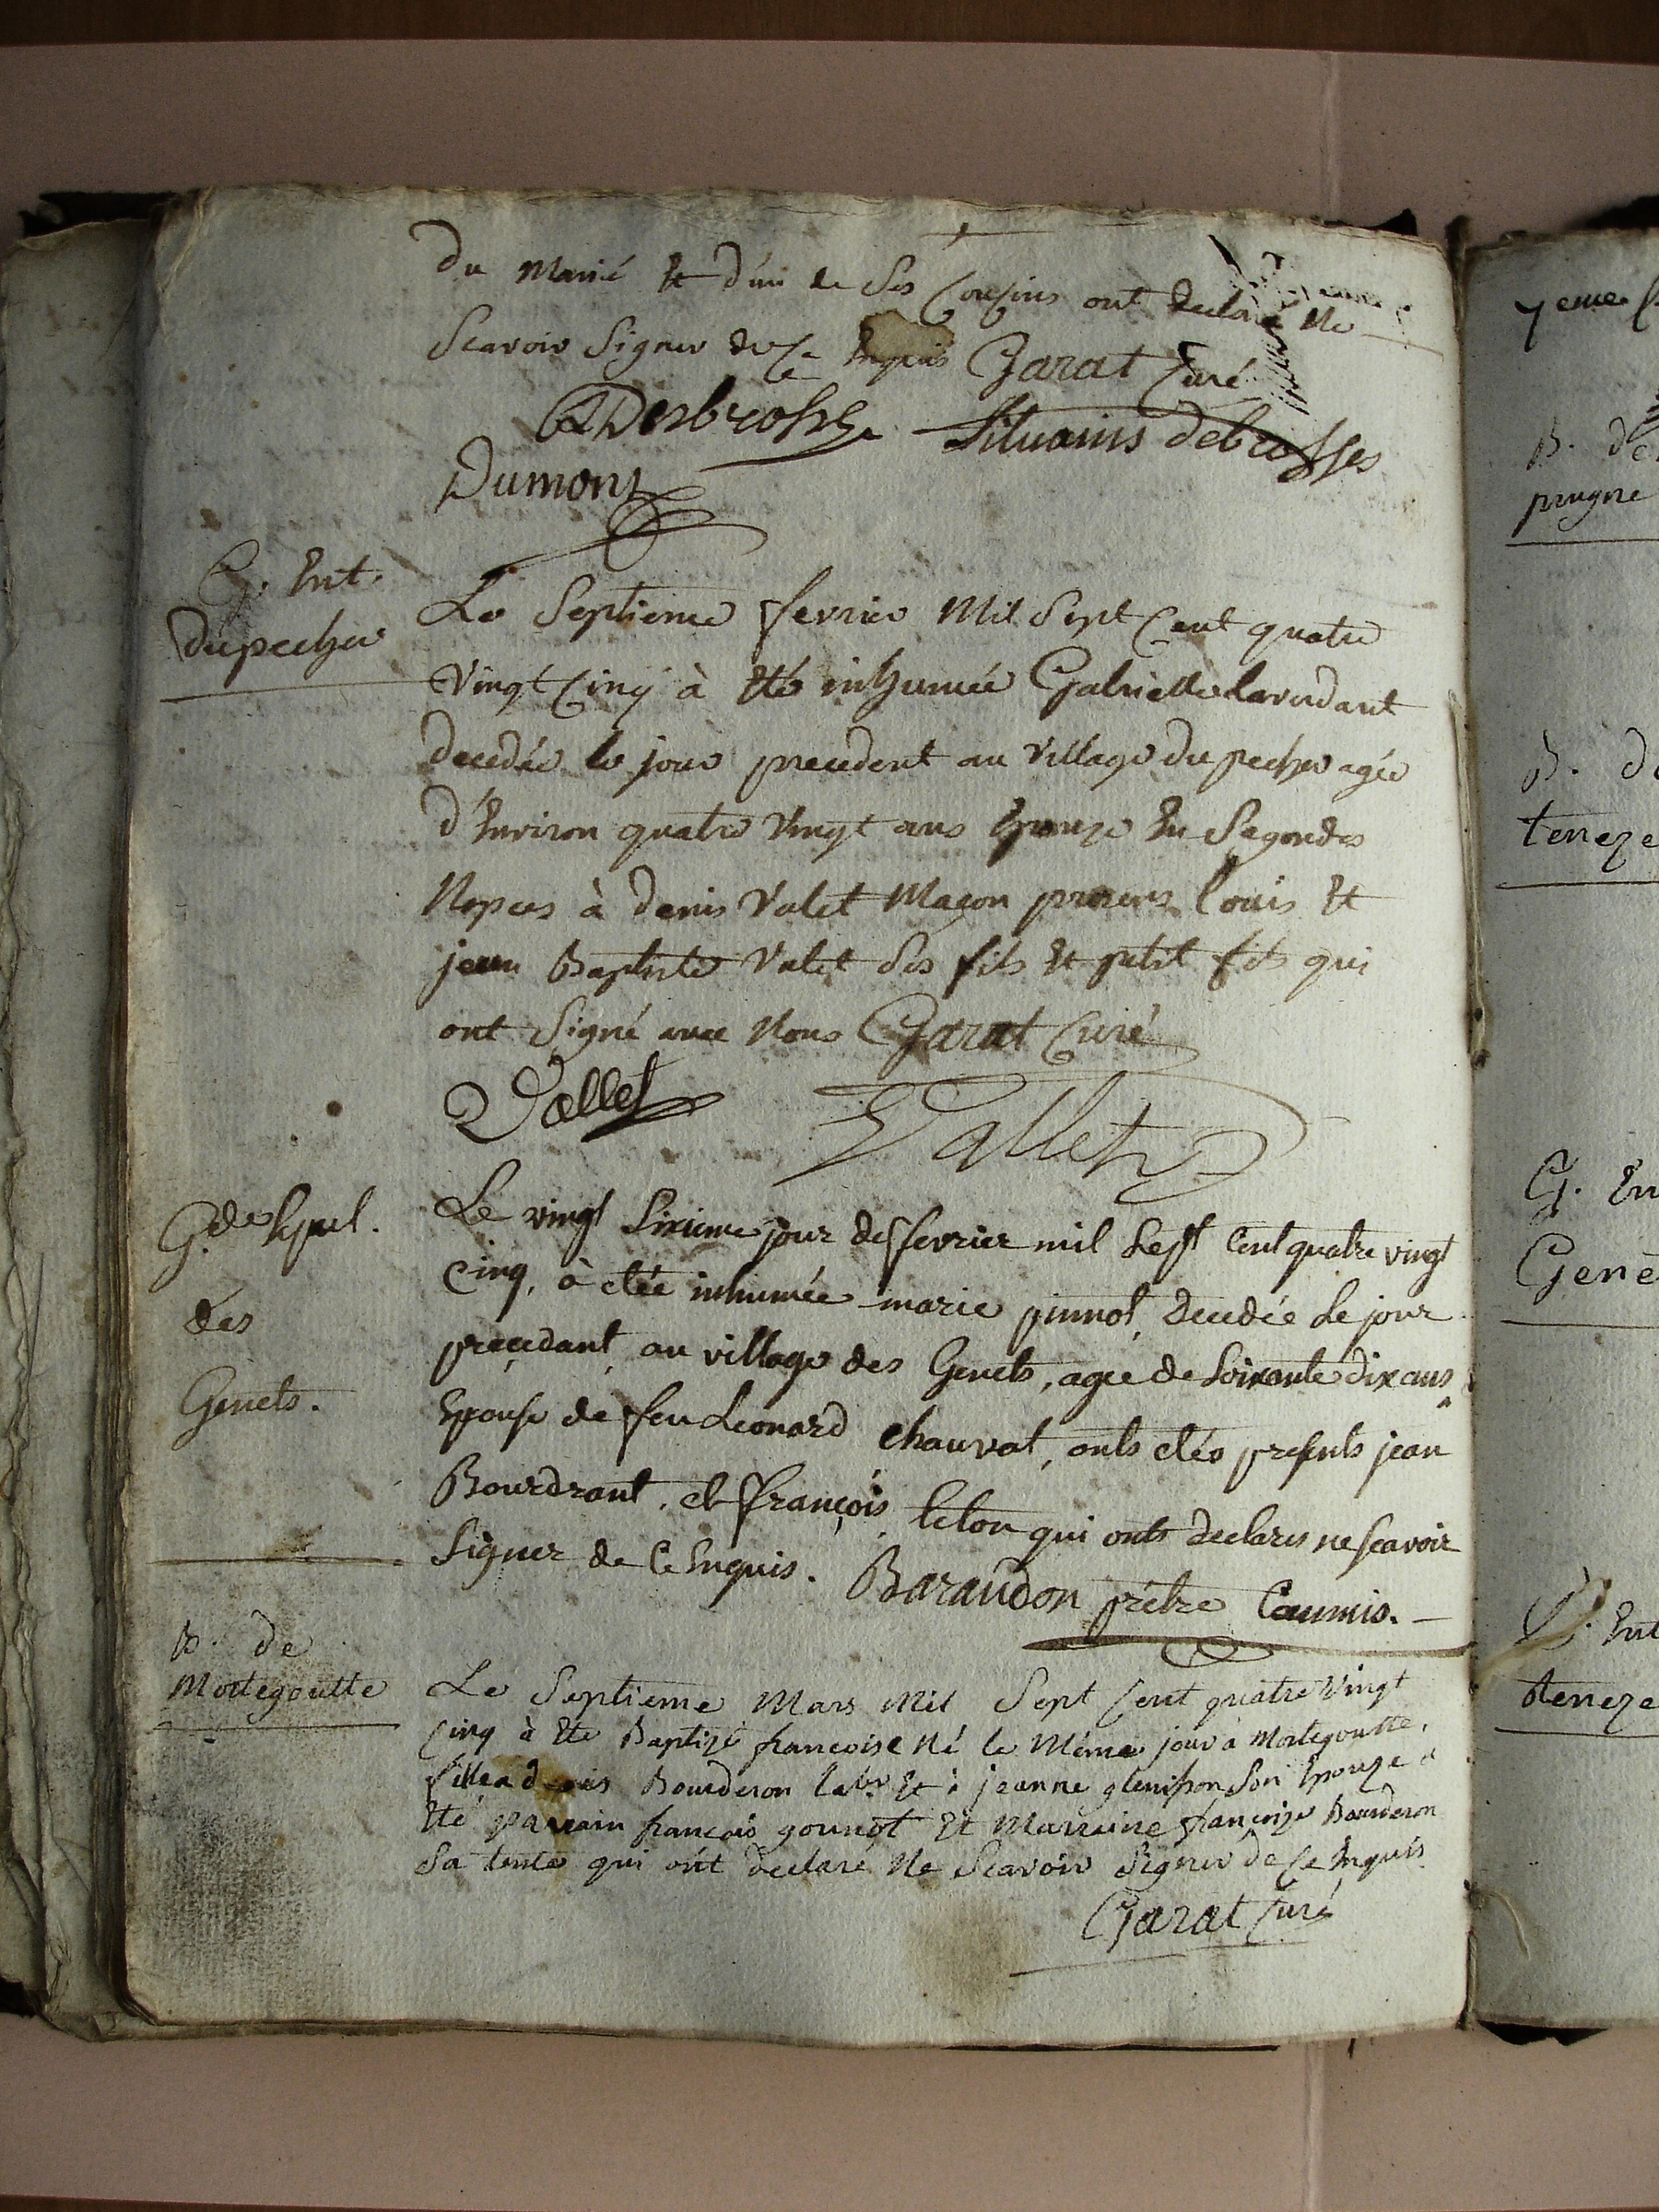 du Marié Et d'un de Ses Cousins ont declaré Ne
Scavoir Signer de ce Enquis Garat Curé
Desbrosse Siluains debrosses
Dumont
G. Ent.
du pecher
Le Septieme fevrier Mil Sept Cent quatre
Vingt Cinq à Eté inhumée Gabrielle laverdant
decedée le jour precedent au Village du pecher agée
d'Environ quatre Vingt ans Epouze En Segondes
Nopces à denis Valet Maçon presens Louis Et
jean Baptiste Valet Ses fils Et petit fils qui
ont Signé avec Nous Garat Curé
Vallet Vallet
G. de Sepul.
des
Genets.
Le vingt Sixieme jour de fevrier mil Sept Cent quatre vingt
Cinq, à etée inhumée marie pinnot, decedée le jour
precedant au village des Genets, agée de Soixante dix ans
Epouse de feu Leonard Chauvat, onts etés presents jean
Bourdrant, et François lelon qui onts declarés ne scavoir
Signer de Ce Enquis. Baraudon prétre Commis.
B. de
Mortegoutte
Le Septieme Mars Mil Sept Cent quatre Vingt
Cinq à Eté Baptizé francoise Né le Méme jour à Mortegoutte,
fille a Bourderon labr. Et à jeanne glenisson Son Epouze a
Eté parrain francois gounot Et Marreine françoize Bourderon
Sa tente qui ont declaré Ne Scavoir Signer de Ce Enquis
Garat Curé
7eme
B. de
prugne
B. de
teneze
G. En
Gene
G. Ent
teneze